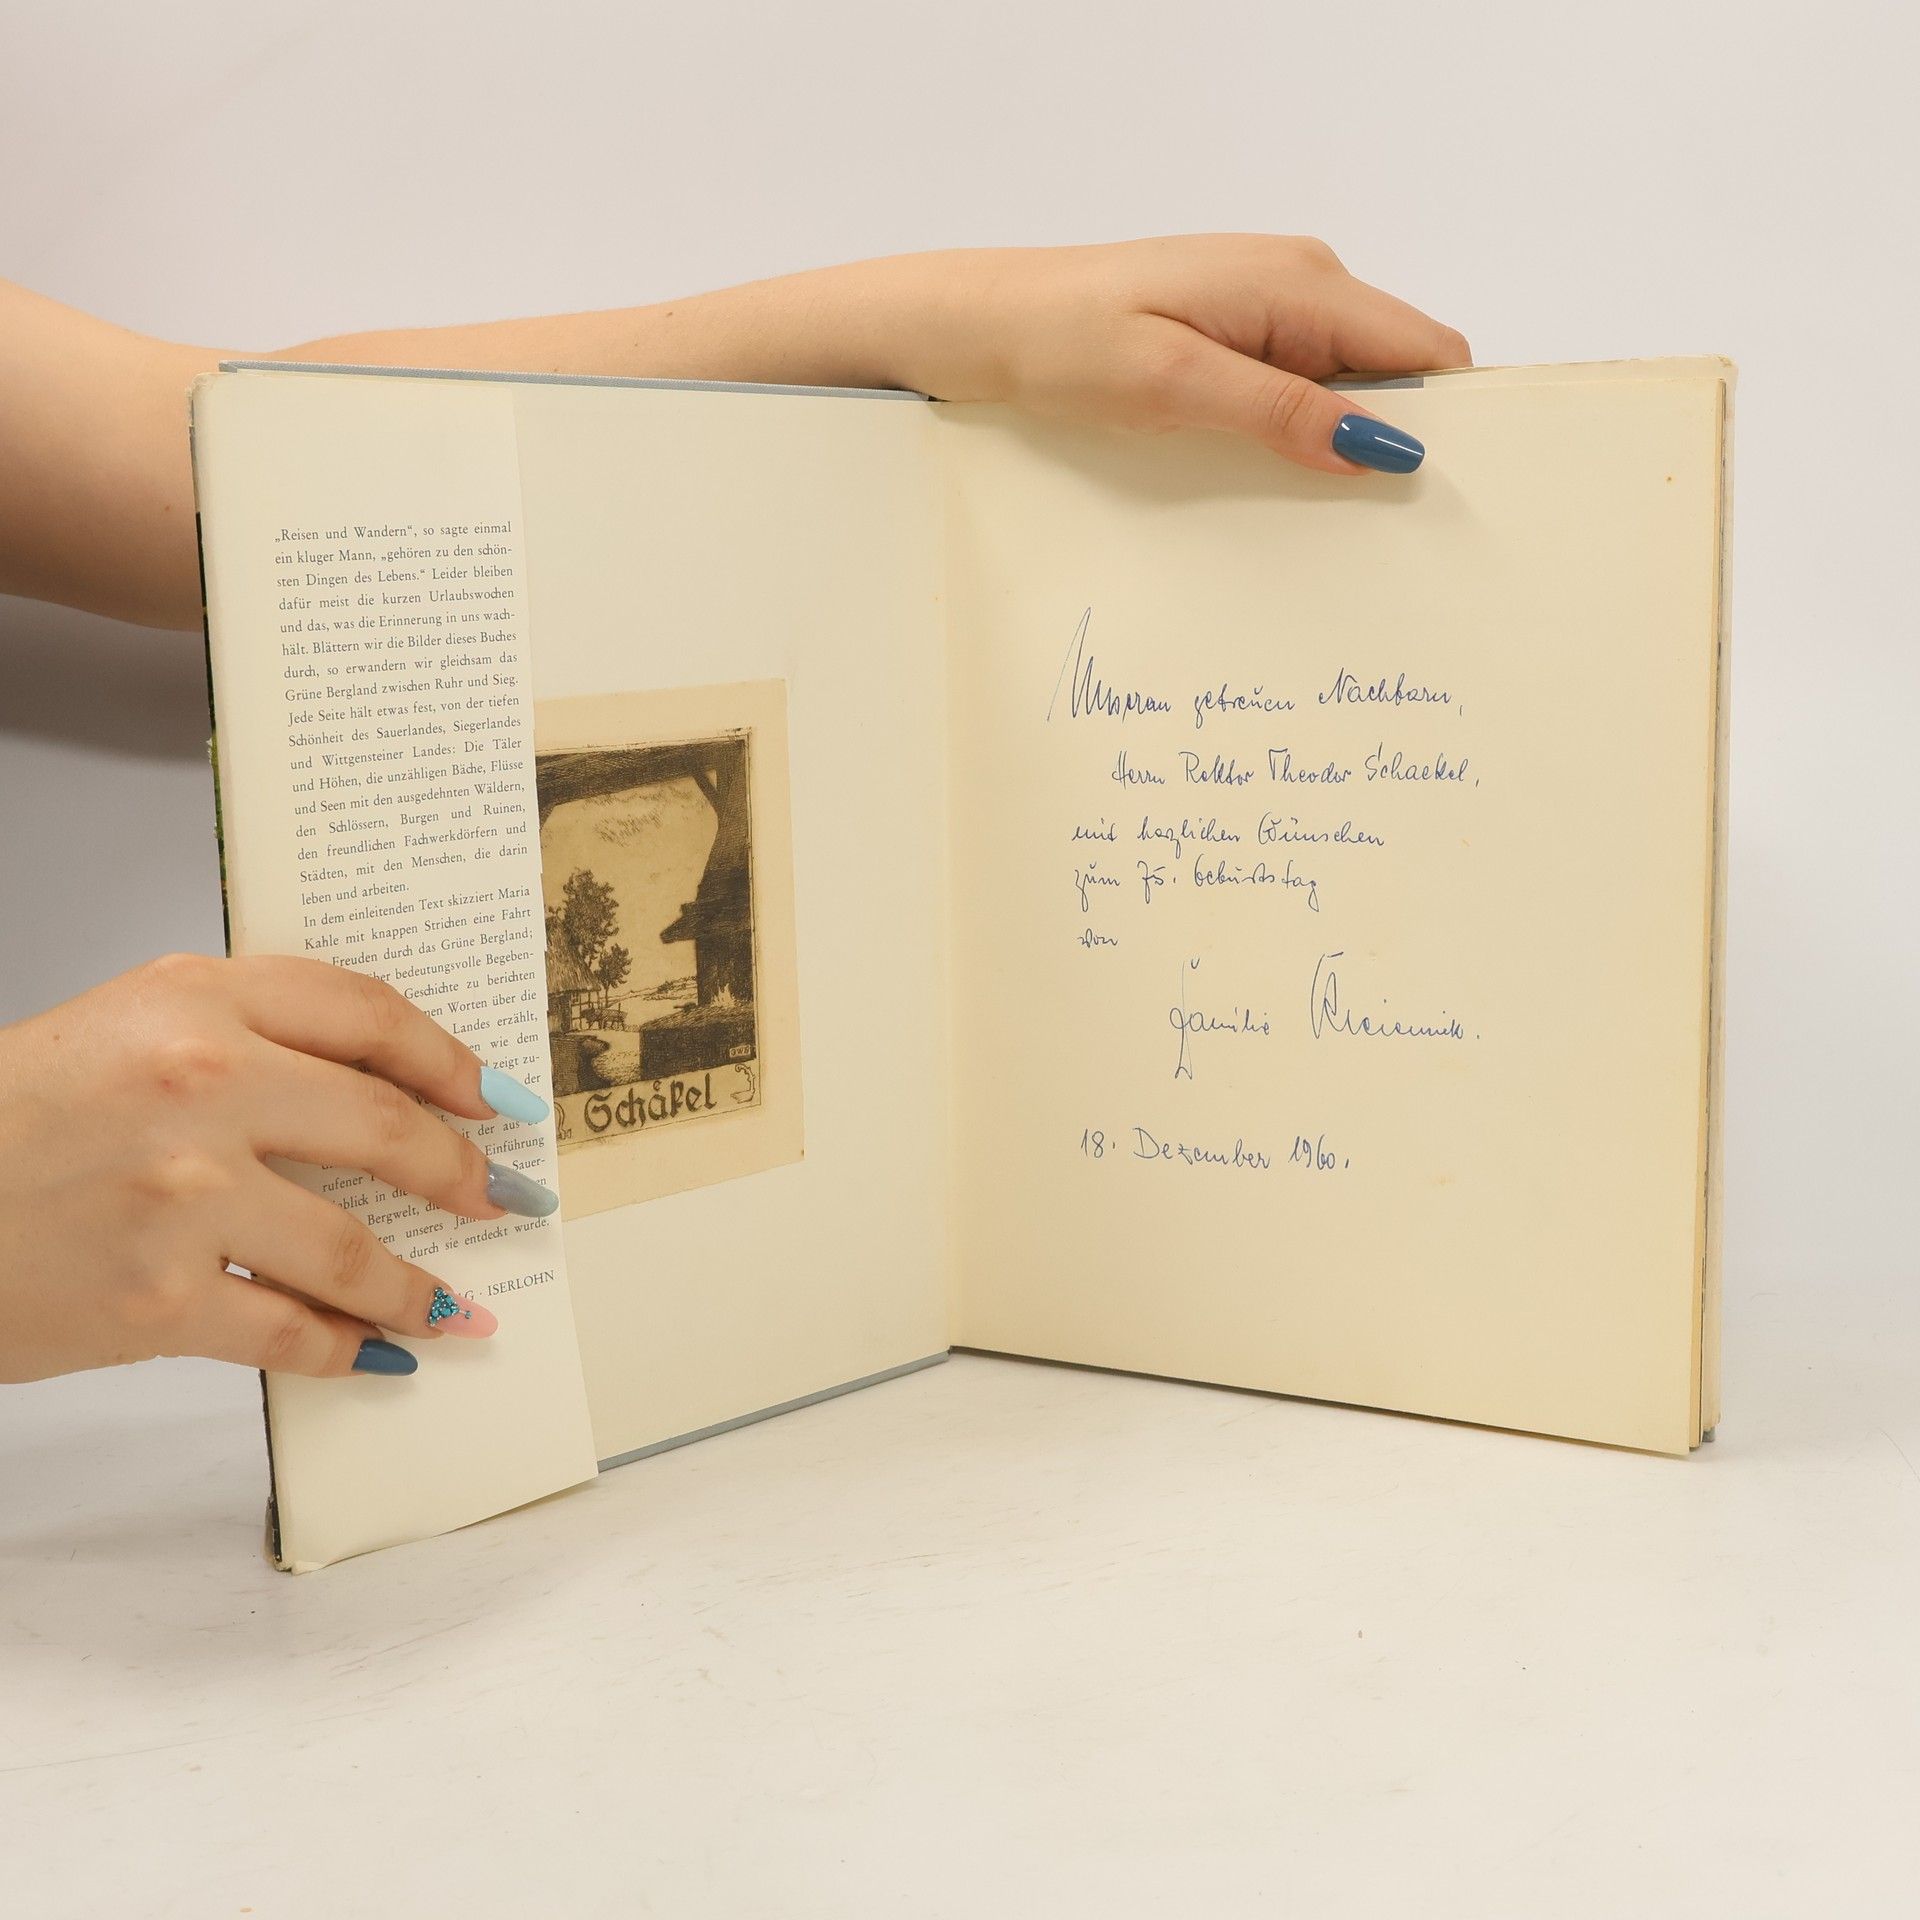 „Reisen und Wandern“, so sagte einmal
ein kluger Mann, „gehören zu den schön-
sten Dingen des Lebens.“ Leider bleiben
dafür meist die kurzen Urlaubswochen
und das, was die Erinnerung in uns wach-
hält. Blättern wir die Bilder dieses Buches
durch, so erwandern wir gleichsam das
Grüne Bergland zwischen Ruhr und Sieg.
Jede Seite hält etwas fest, von der tiefen
Schönheit des Sauerlandes, Siegerlandes
und Wittgensteiner Landes: Die Täler
und Höhen, die unzähligen Bäche, Flüsse
und Seen mit den ausgedehnten Wäldern,
den Schlössern, Burgen und Ruinen,
den freundlichen Fachwerkdörfern und
Städten, mit den Menschen, die darin
leben und arbeiten.
In dem einleitenden Text skizziert Maria
Kahle mit knappen Strichen eine Fahrt
Freuden durch das Grüne Bergland;
bedeutungsvolle Begeben-
Geschichte zu berichten
Worten über die
Landes erzählt,
wie dem
zeigt zu-
der
der aus
Einführung
Sauer-
rufener
in die
Bergwelt,
unseres
durch sie entdeckt wurde.
ISERLOHN
Schäkel
Unseren getreuen Nachbarn,
Herrn Rektor Theodor Schaekel,
mit herzlichen Wünschen
zum 75. Geburtstag
von
Familie
18. Dezember 1960.